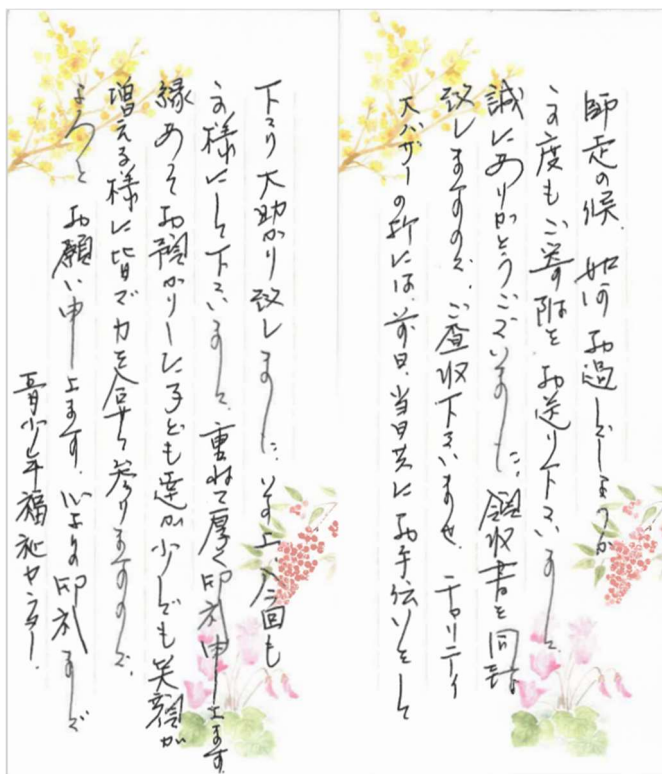 師走の候、如何お過しでしょうか
この度もご寄附をお送り下さいまして、
誠にありがとうございました。領収書を同封
致しますので、ご査収下さいませ。チャリティ
大バザーの折には、前日、当日共にお手伝いをして
下さり大助かり致しました。その上、今回も
この様にして下さいまして、重ねて厚く御礼申し上ます。
縁あってお預かりした子ども達が少しでも笑顔が
増える様に皆で力を合せて参りますので、
よろしくお願い申し上ます。心よりの御礼まで
青少年福祉センター